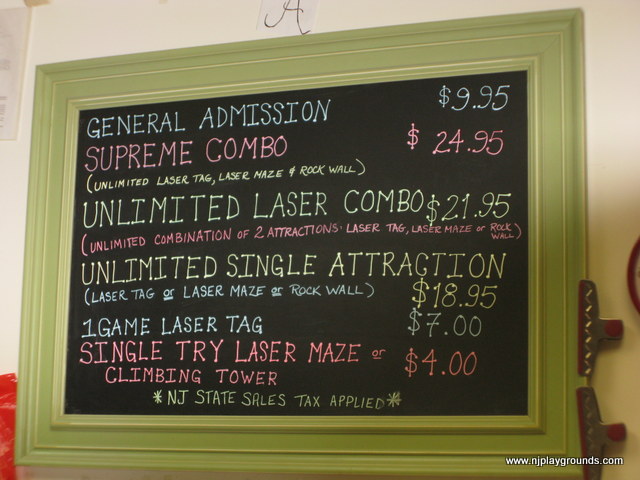 A
GENERAL ADMISSION $9.95
SUPREME COMBO $24.95
(UNLIMITED LASER TAG, LASER MAZE & ROCK WALL)
UNLIMITED LASER COMBO $21.95
(UNLIMITED COMBINATION OF 2 ATTRACTIONS: LASER TAG, LASER MAZE OR ROCK WALL)
UNLIMITED SINGLE ATTRACTION
(LASER TAG OR LASER MAZE OR ROCK WALL) $18.95
1 GAME LASER TAG $7.00
SINGLE TRY LASER MAZE OR $4.00
CLIMBING TOWER
*NJ STATE SALES TAX APPLIED*
www.njplaygrounds.com